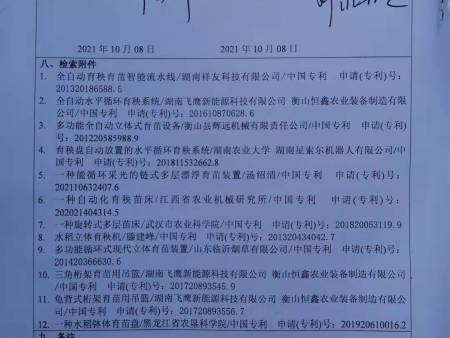 2021 年 10 月 08 日 2021 年 10 月 08 日
八、检索附件
1. 全自动育秧育苗智能流水线/湖南祥友科技有限公司/中国专利 申请(专利)号:
201320186588.5
2. 全自动水平循环育秧系统/湖南飞鹰新能源科技有限公司 衡山恒鑫农业装备制造有限
公司/中国专利 申请(专利)号:201610870628.6
3. 多功能全自动立体式育苗设备/衡山县辉远机械有限责任公司/中国专利 申请(专利)
号:201220585988.9
4. 育秧盘自动放置的水平循环育秧系统/湖南农业大学 湖南星索尔机器人有限公司/中
国专利 申请(专利)号:201811532662.8
5. 一种能循环采光的链式多层漂浮育苗装置/汤绍清/中国专利 申请(专利)号:
202110632407.6
6. 一种自动化育秧苗床/江西省农业机械研究所/中国专利 申请(专利)号:
202021404314.5
7. 一种旋转式多层苗床/武汉市农业科学院/中国专利 申请(专利)号:201820053119.9
8. 水稻立体育秧机/滕建峰/中国专利 申请(专利)号:201320434042.7
9. 多功能循环式现代立体育苗装置/山东临沂烟草有限公司/中国专利 申请(专利)号:
201420366630.6
10. 三角桁架育苗用吊篮/湖南飞鹰新能源科技有限公司 衡山恒鑫农业装备制造有限公司
/中国专利 申请(专利)号:201720893545.9
11. 龟背式桁架育苗用吊篮/湖南飞鹰新能源科技有限公司 衡山恒鑫农业装备制造有限公
司/中国专利 申请(专利)号:201720893556.7
12. 一种水稻钵体育苗盘/黑龙江省农垦科学院/中国专利 申请(专利)号:201920610016.2
九、备注